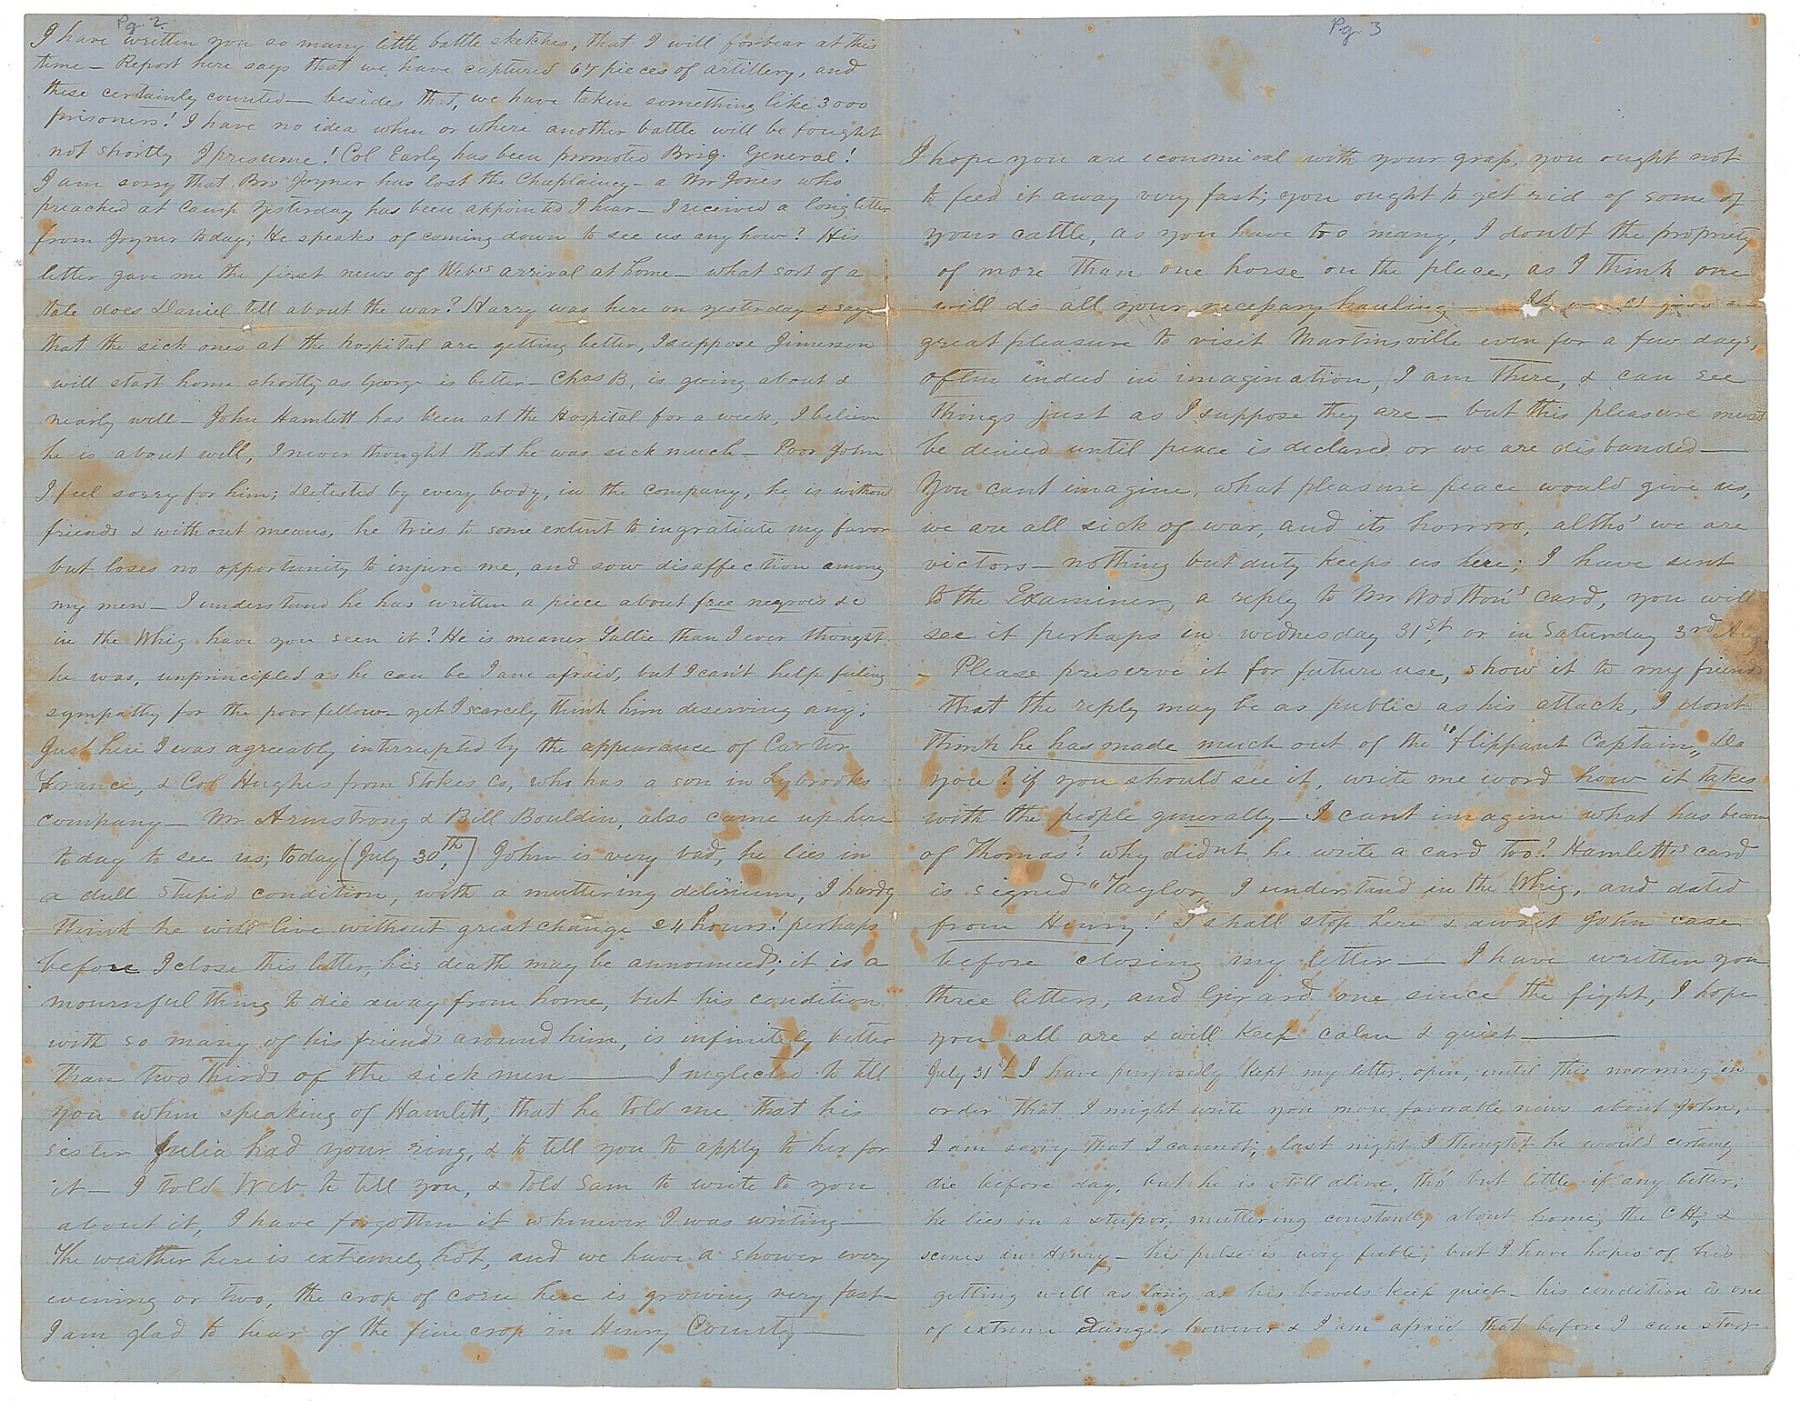 Pg. 2
I have written you so many little battle sketches, that I will forbear at this
time — Report here says that we have captured 67 pieces of artillery, and
these certainly counted — besides that, we have taken something like 3000
prisoners! I have no idea when or where another battle will be fought
not shortly I presume! Col Early has been promoted Brig. General!
I am sorry that Bro Joyner has lost the Chaplaincy — a Mr Jones who
preached at Camp yesterday has been appointed I hear — I received a long letter
from Joyner today; He speaks of coming down to see us any how? His
letter gave me the first news of Web's arrival at home — what sort of a
tale does Daniel tell about the war? Harry was here on yesterday & says
that the sick ones at the hospital are getting better, I suppose Jimerson
will start home shortly as George is better — Chas B, is going about &
nearly well — John Hamlett has been at the Hospital for a week, I believe
he is about well, I never thought that he was sick much — Poor John
I feel sorry for him; detested by every body, in the company, he is without
friends & without means, he tries to some extent to ingratiate my favor
but loses no opportunity to injure me, and sow disaffection among
my men — I understand he has written a piece about free negroes &c
in the Whig have you seen it? He is meaner Sallie than I ever thought
he was, unprincipled as he can be I am afraid, but I can't help feeling
sympathy for the poor fellow — yet I scarcely think him deserving any;
Just here I was agreeably interrupted by the appearance of Carter
France, & Col Hughes from Stokes Co, who has a son in Lybrooks
company — Mr Armstrong & Bill Bouldin, also came up here
today to see us; today (July 30th,) John is very bad, he lies in
a dull stupid condition, with a muttering delirium, I hardly
think he will live without great change 24 hours! perhaps
before I close this letter, his death may be announced; it is a
mournful thing to die away from home, but his condition
with so many of his friends around him, is infinitely better
than two thirds of the sick men — I neglected to tell
you when speaking of Hamlett, that he told me that his
sister Julia had your ring, & to tell you to apply to her for
it — I told Web to tell you, & told Sam to write to you
about it, I have forgotten it whenever I was writing —
The weather here is extremely hot, and we have a shower every
evening or two, the crop of corn here is growing very fast —
I am glad to hear of the fine crop in Henry County —
Pg. 3
I hope you are economical with your grass, you ought not
to feed it away very fast; you ought to get rid of some of
your cattle, as you have too many, I doubt the propriety
of more than one horse on the place, as I think one
will do all your necessary hauling — It would give me
great pleasure to visit Martinsville even for a few days,
often indeed in imagination, I am there, & can see
things just as I suppose they are — but this pleasure must
be denied until peace is declared or we are disbanded —
You cant imagine, what pleasure peace would give us,
we are all sick of war, and its horrors, altho' we are
victors — nothing but duty keeps us here; I have sent
to the Examiner, a reply to Mr Wootton's card, you will
see it perhaps in wednesday 31st, or in Saturday 3rd Aug
— Please preserve it for future use, show it to my friends
that the reply may be as public as his attack, I dont
think he has made much out of the "flippant Captain", Do
you? if you should see it, write me word how it takes
with the people generally — I cant imagine what has become
of Thomas? why didnt he write a card too? Hamlett's card
is signed "Taylor, I understand in the Whig, and dated
from Henry! I shall stop here & await John case
before closing my letter — I have written you
three letters, and Girard one since the fight, I hope
you all are & will keep calm & quiet —
July 31st — I have purposedly kept my letter open, until this morning in
order that I might write you more favorable news about John,
I am sorry that I cannot; last night I thought he would certainly
die before day, but he is still alive, tho' but little if any better;
he lies in a stupor, muttering constantly about home, the CH, &
scenes in Henry — his pulse is very feeble, but I have hopes of his
getting well as long as his bowels keep quiet — his condition is one
of extreme danger however & I am afraid that before I can start